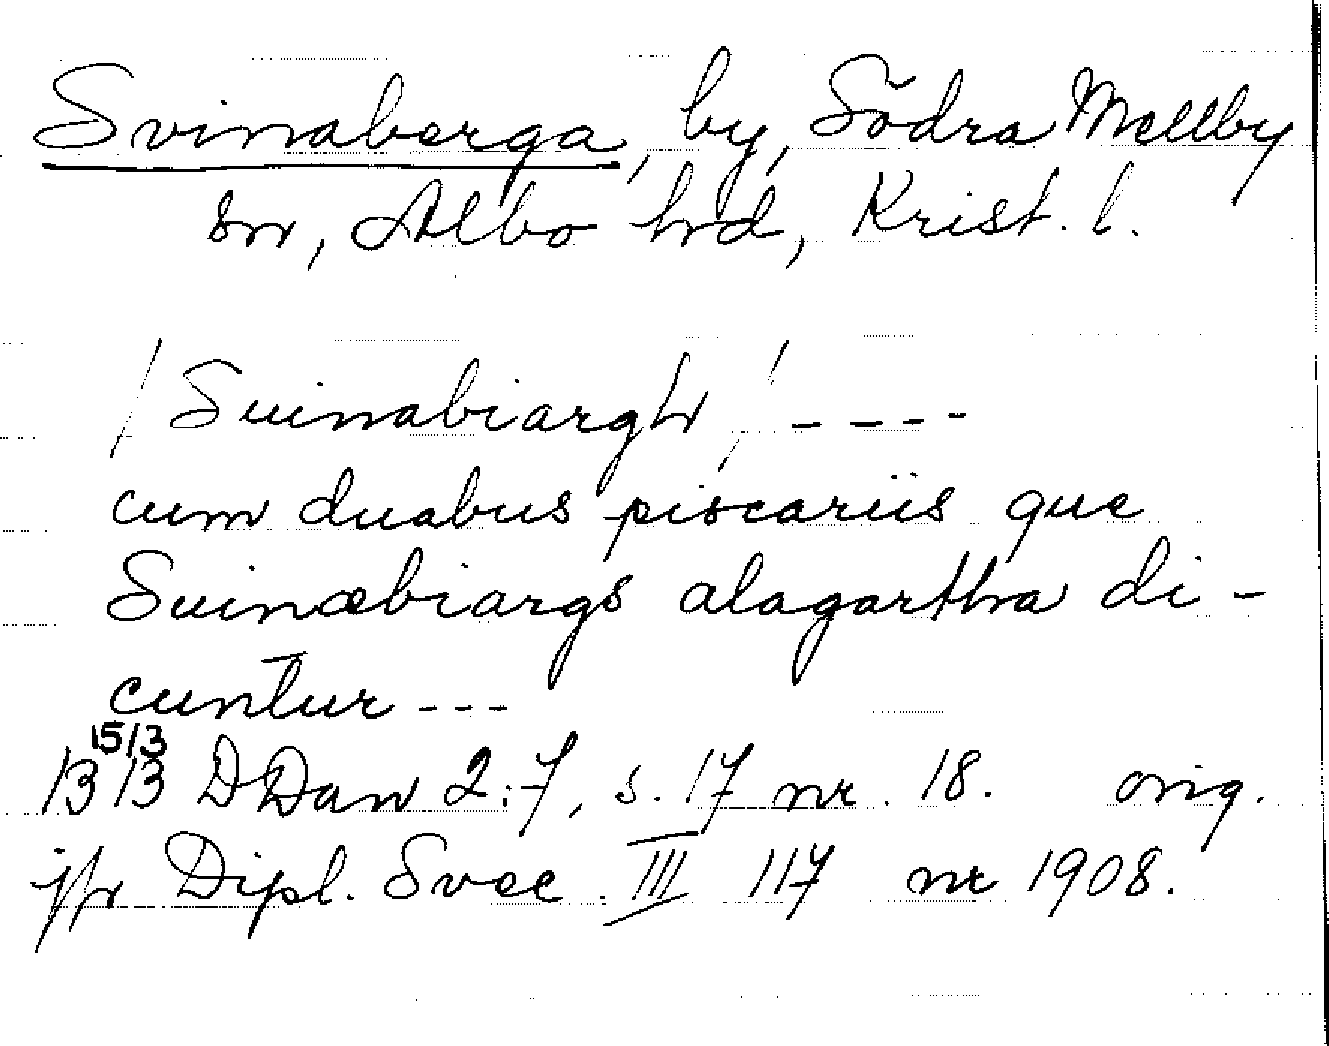 Svinaberga, by, Södra Mellby
sn, Albo hd, Krist. l.
/Suinabiargh/ ----
cum duabus piscariis que
Suinæbiargs alagartha di-
cuntur ---
15/3
1313 DDan 2:7, s. 17 nr. 18. orig.
jfr Dipl. Svec. III 117 nr 1908.